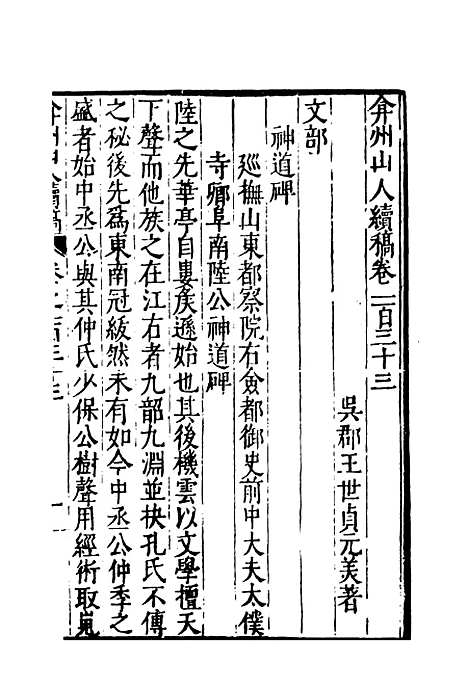 弇州山人續稿卷一百三十三
吳郡王世貞元美著
文部
神道碑
廵撫山東都察院右僉都御史前中大夫太僕
寺卿阜南陸公神道碑
陸之先華亭自婁矦遜始也其後機雲以文學擅天
下聲而他族之在江右者九韶九淵並抉孔氏不傳
之秘後先爲東南冠紱然未有如今中丞公仲季之
盛者始中丞公與其仲氏少保公樹聲用經術取嵬